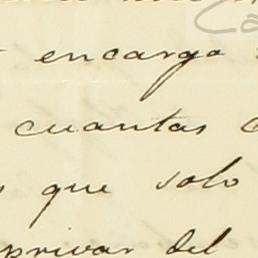 encargo
cuantas
que solo
privar del